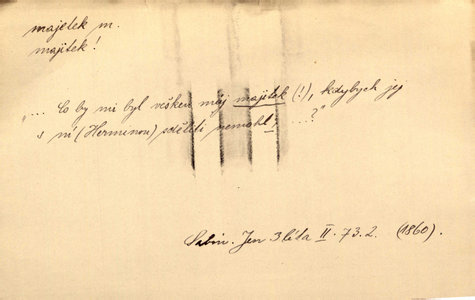 majetek m.
majitek!
"... Co by mi byl vešken můj majitek (!), kdybych jej
s ní (Herminou) sděliti nemohl, ...?"
Sabin. Jen 3 léta II. 73.2. (1860).